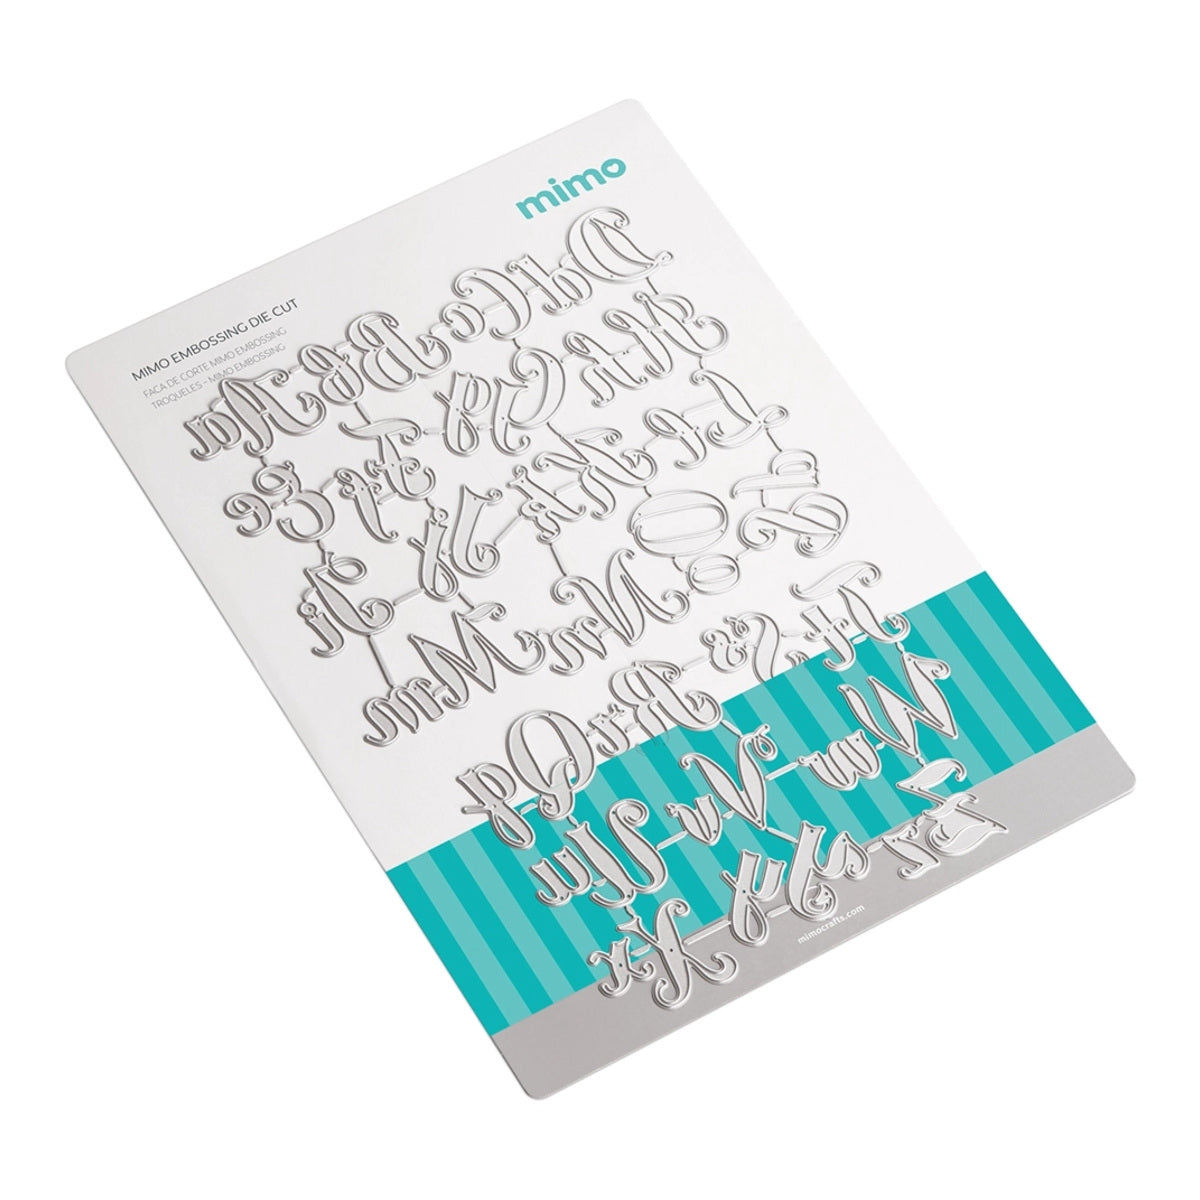 mimo
MIMO EMBOSSING DIE CUT
FACA DE CORTE MIMO EMBOSSING
TROQUELES - MIMO EMBOSSING
A a r B b C c D d
E e F f G g H h
I i J j K k L l
M m N n O o P p
Q q R r S s T t
U u V v W w
X x Y y Z z
mimocrafts.com